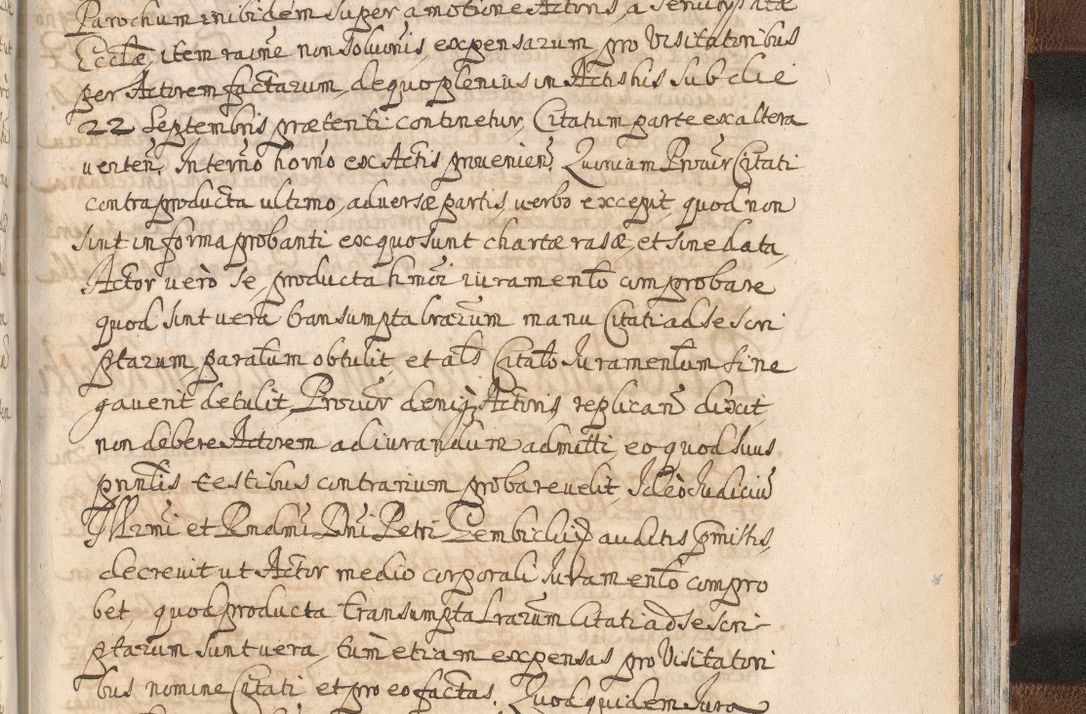 Parochum inibidem super amotione Actoris, a servi͠s p̃satæ
Eccl̃æ, item ra͠ne non soluõnis expensarum, pro Visitatoribus
per Actorem factarum, de quo plenius in Actis his sub die
22 Septembris prætenti continetur, Citatum parte ex altera
verteñ. In termño horño ex Actis provenieñ. Quoniam Procur̃ Citati
contra producta ultimo, adversæ partis, verbo excepit, quod non
sint in forma probanti ex quo sunt chartæ rasæ, et sine data,
Actor verò se, producta hmõi iuramento comprobare
quod sint vera transumpta lrarũm manu Citati ad se scri
ptarum paratum obtulit et als̃ Citato Juramentum si ne
gaverit detulit, Procur̃ deniq₃ Actoris replicañ dixit
non debere Actorem ad iurandum admitti eo quod suus
pñntis testibus contrarium probare velit. Ideò Judiciũ
Illr̃mi et Rñdmi Dñi Petri Gembicki auditis p̃missis,
decrevit ut Actor medio corporali Juramento compro
bet, quod producta transumpta lrarũm Citati ad se scri-
ptarum sunt vera, tùm etiam expensas pro Visitatori
bus nomine Citati et pro eo factas. Quod quidem Jura